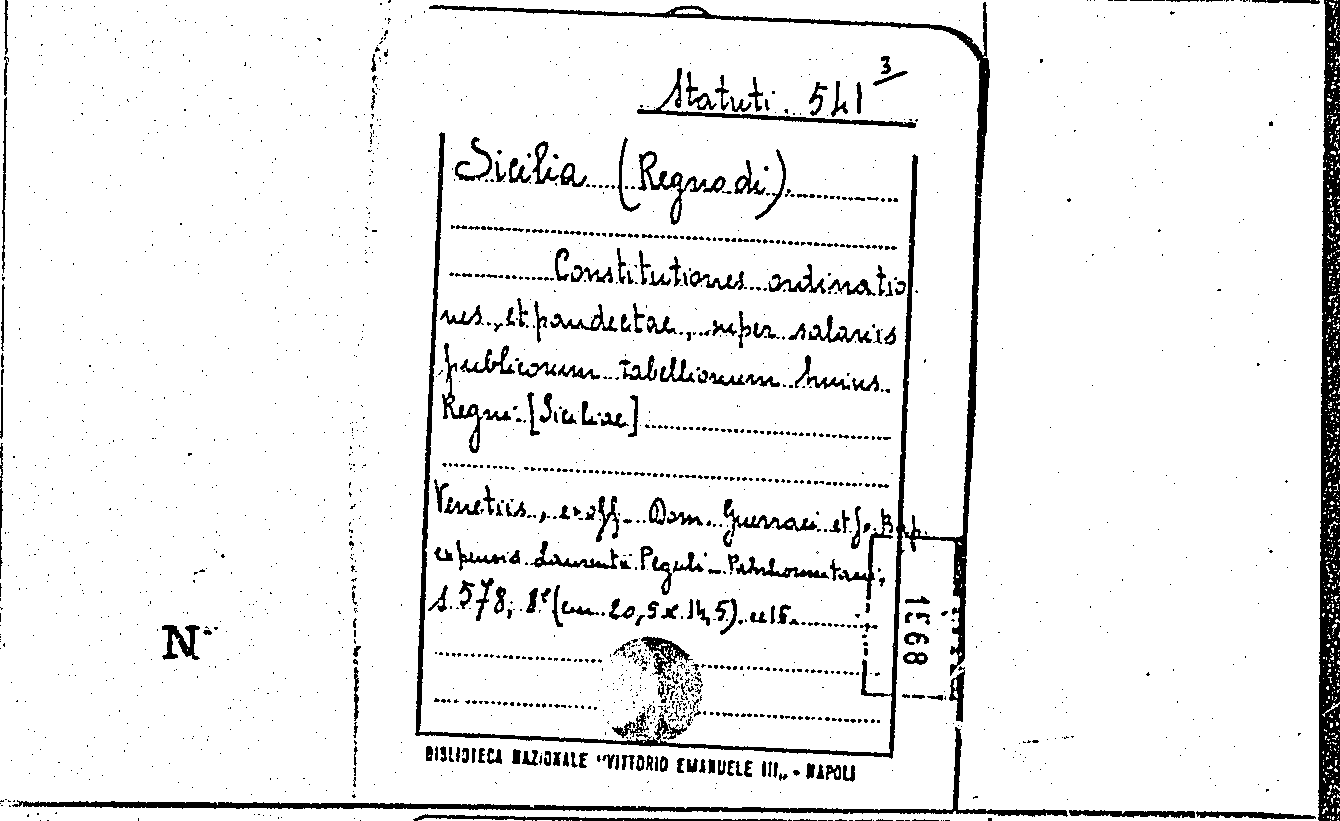 Statuti. 541 3/
Sicilia (Regno di).
Constitutiones ordinatio
nes, et pandectae, super salariis
publicorum tabellionum huius
Regni [Siciliae]
Venetiis, ex off. Dom. Guerraei et Jo. Bap.
expensis Laurentii Peguli Panhormitani,
1578, 8º (cm. 20,5 x 14,5)
N
BIBLIOTECA NAZIONALE "VITTORIO EMANUELE III„ - NAPOLI